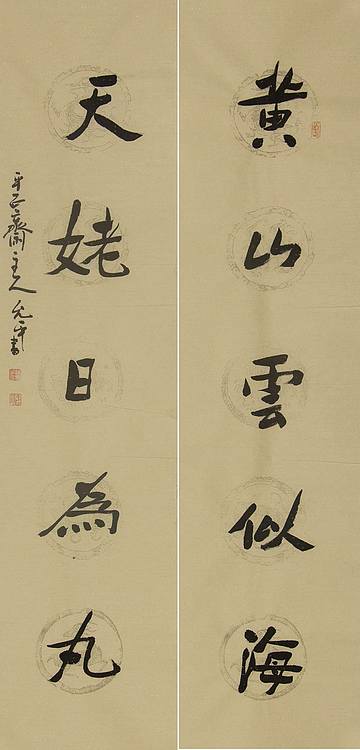 黄山雲似海
天姥日為丸
平正齋主人允平書